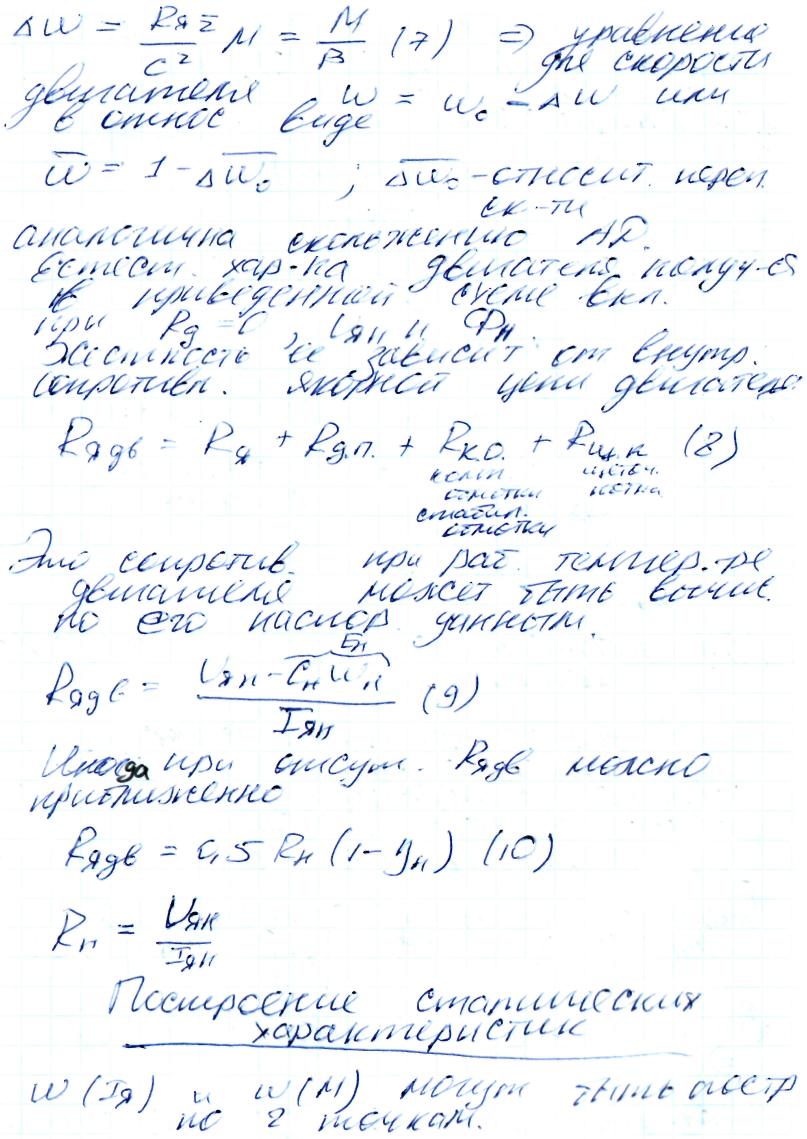 Δω = RяΣ/c² M = M/β (7) ⇒ уравнение
для скорости
двигателя ω = ω₀ - Δω или
в относ виде
ω̅ = 1 - Δω̅₀ ; Δω̅₀ - относит. переп.
ск-ти
аналогична скольжению АД.
Естест. хар-ка двигателя получ-ся
в приведенной схеме вкл.
при Rд = 0, Uян и Фн.
Жесткость ее зависит от внутр.
сопротивл. якорной цепи двигателя
Rядв = Rя + Rд.п. + Rк.о. + Rщ.к (8)
комп. щеточ.
обмотки контак
стабил.
обмотки
Это сопротив. при раб. темпер-ре
двигателя может быть вычис.
по его паспор данным.
Eн
Rядв = (Uян - Cнωн)/Iян (9)
Иногда при отсут. Rядв можно
приближенно
Rядв = 0,5 Rн (1 - ηн) (10)
Rн = Uян/Iян
Построение статических
характеристик
ω (Iя) и ω(M) могут быть постр
по 2 точкам.